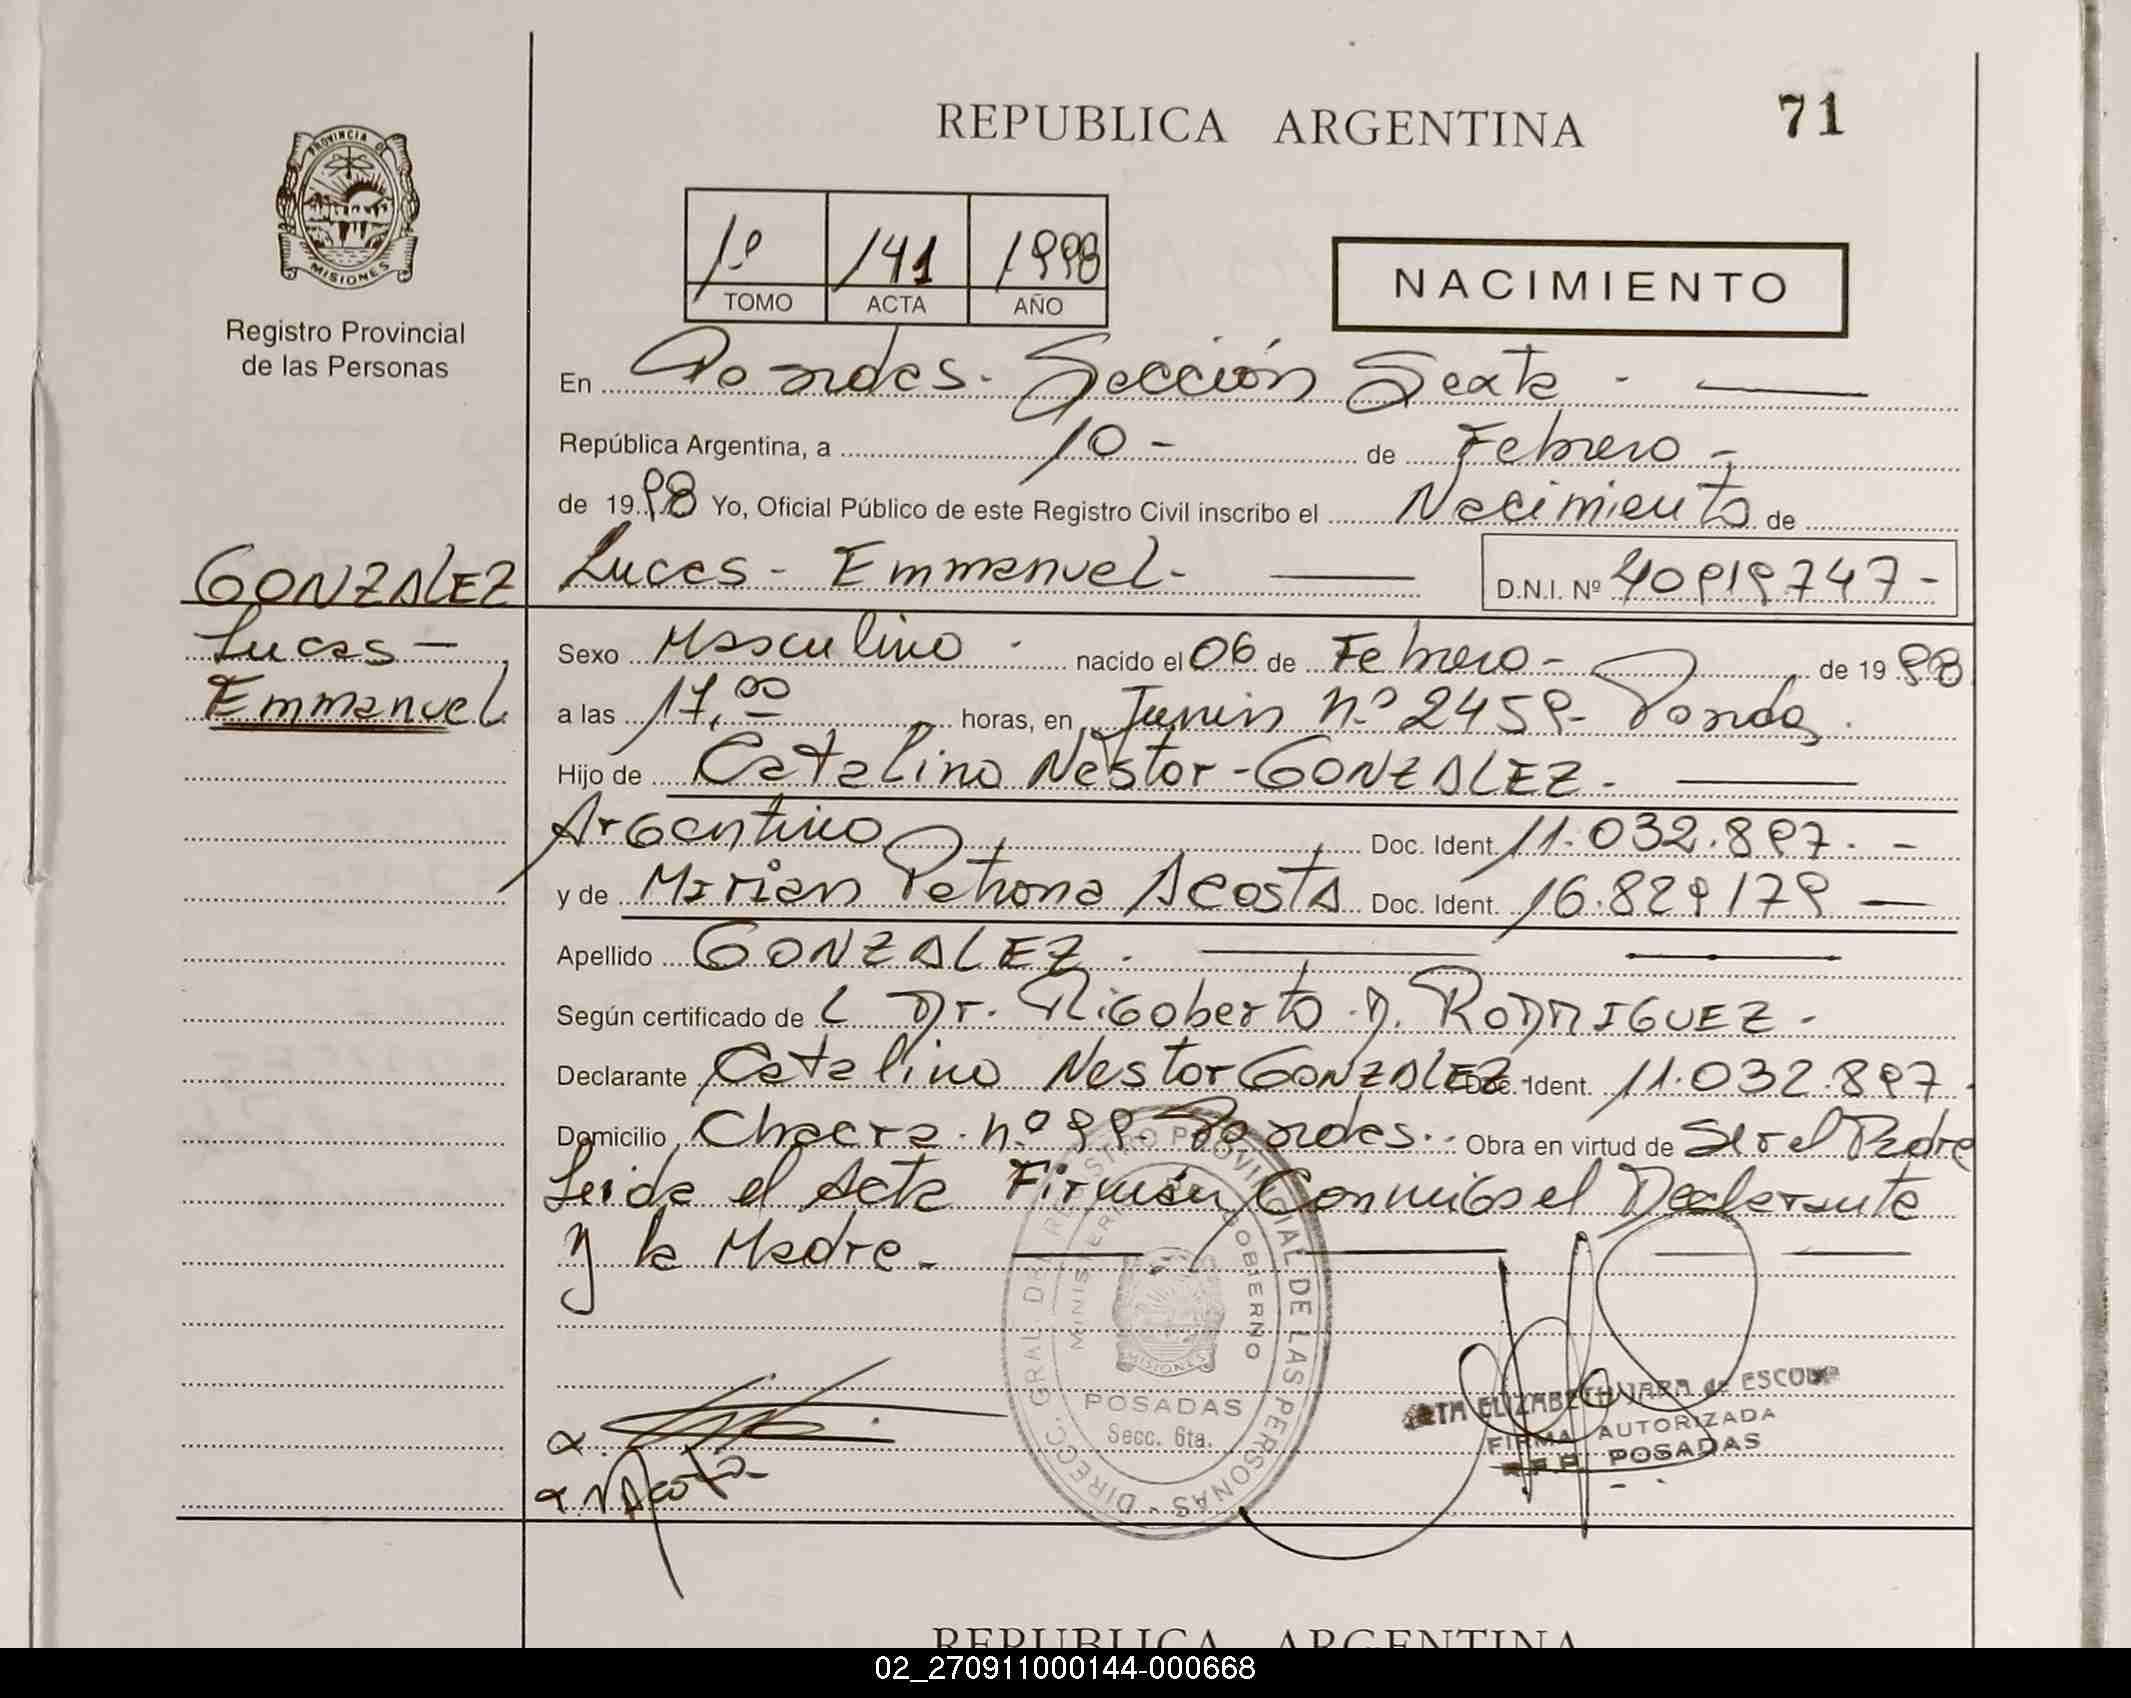 REPUBLICA ARGENTINA
71
PROVINCIA DE
MISIONES
Registro Provincial
de las Personas
1º 141 1998
TOMO ACTA AÑO
NACIMIENTO
En Posadas - Sección Sexta -
República Argentina, a 10 - de Febrero -
de 1998 Yo, Oficial Público de este Registro Civil inscribo el Nacimiento de
GONZALEZ Lucas - Emmanuel - D.N.I. Nº 40919747 -
Lucas - Sexo Masculino - nacido el 06 de Febrero - de 1998
Emmanuel a las 17,00 horas, en Junin nº 2459 - Posadas.
Hijo de Catalino Nestor - GONZALEZ -
Argentino Doc. Ident. 11.032.897. -
y de Mirian Petrona Acosta Doc. Ident. 16.829179 -
Apellido GONZALEZ.
Según certificado de L Dr. Rigoberto D. RODRIGUEZ -
Declarante Catalino Nestor GONZALEZ Doc. Ident. 11.032.897.
Domicilio Chacra nº 99 - Posadas. Obra en virtud de Ser el Padre
Leida el Acta Firmán Conmigo el Declarante
y la Madre -
DIRECC. GRAL. DEL REGISTRO PROVINCIAL DE LAS PERSONAS -
MINISTERIO DE GOBIERNO
MISIONES
POSADAS
Secc. 6ta.
ELIZABETH JARA de
FIRMA AUTORIZADA
R.P.P. POSADAS
Acosta
REPUBLICA ARGENTINA
02_270911000144-000668